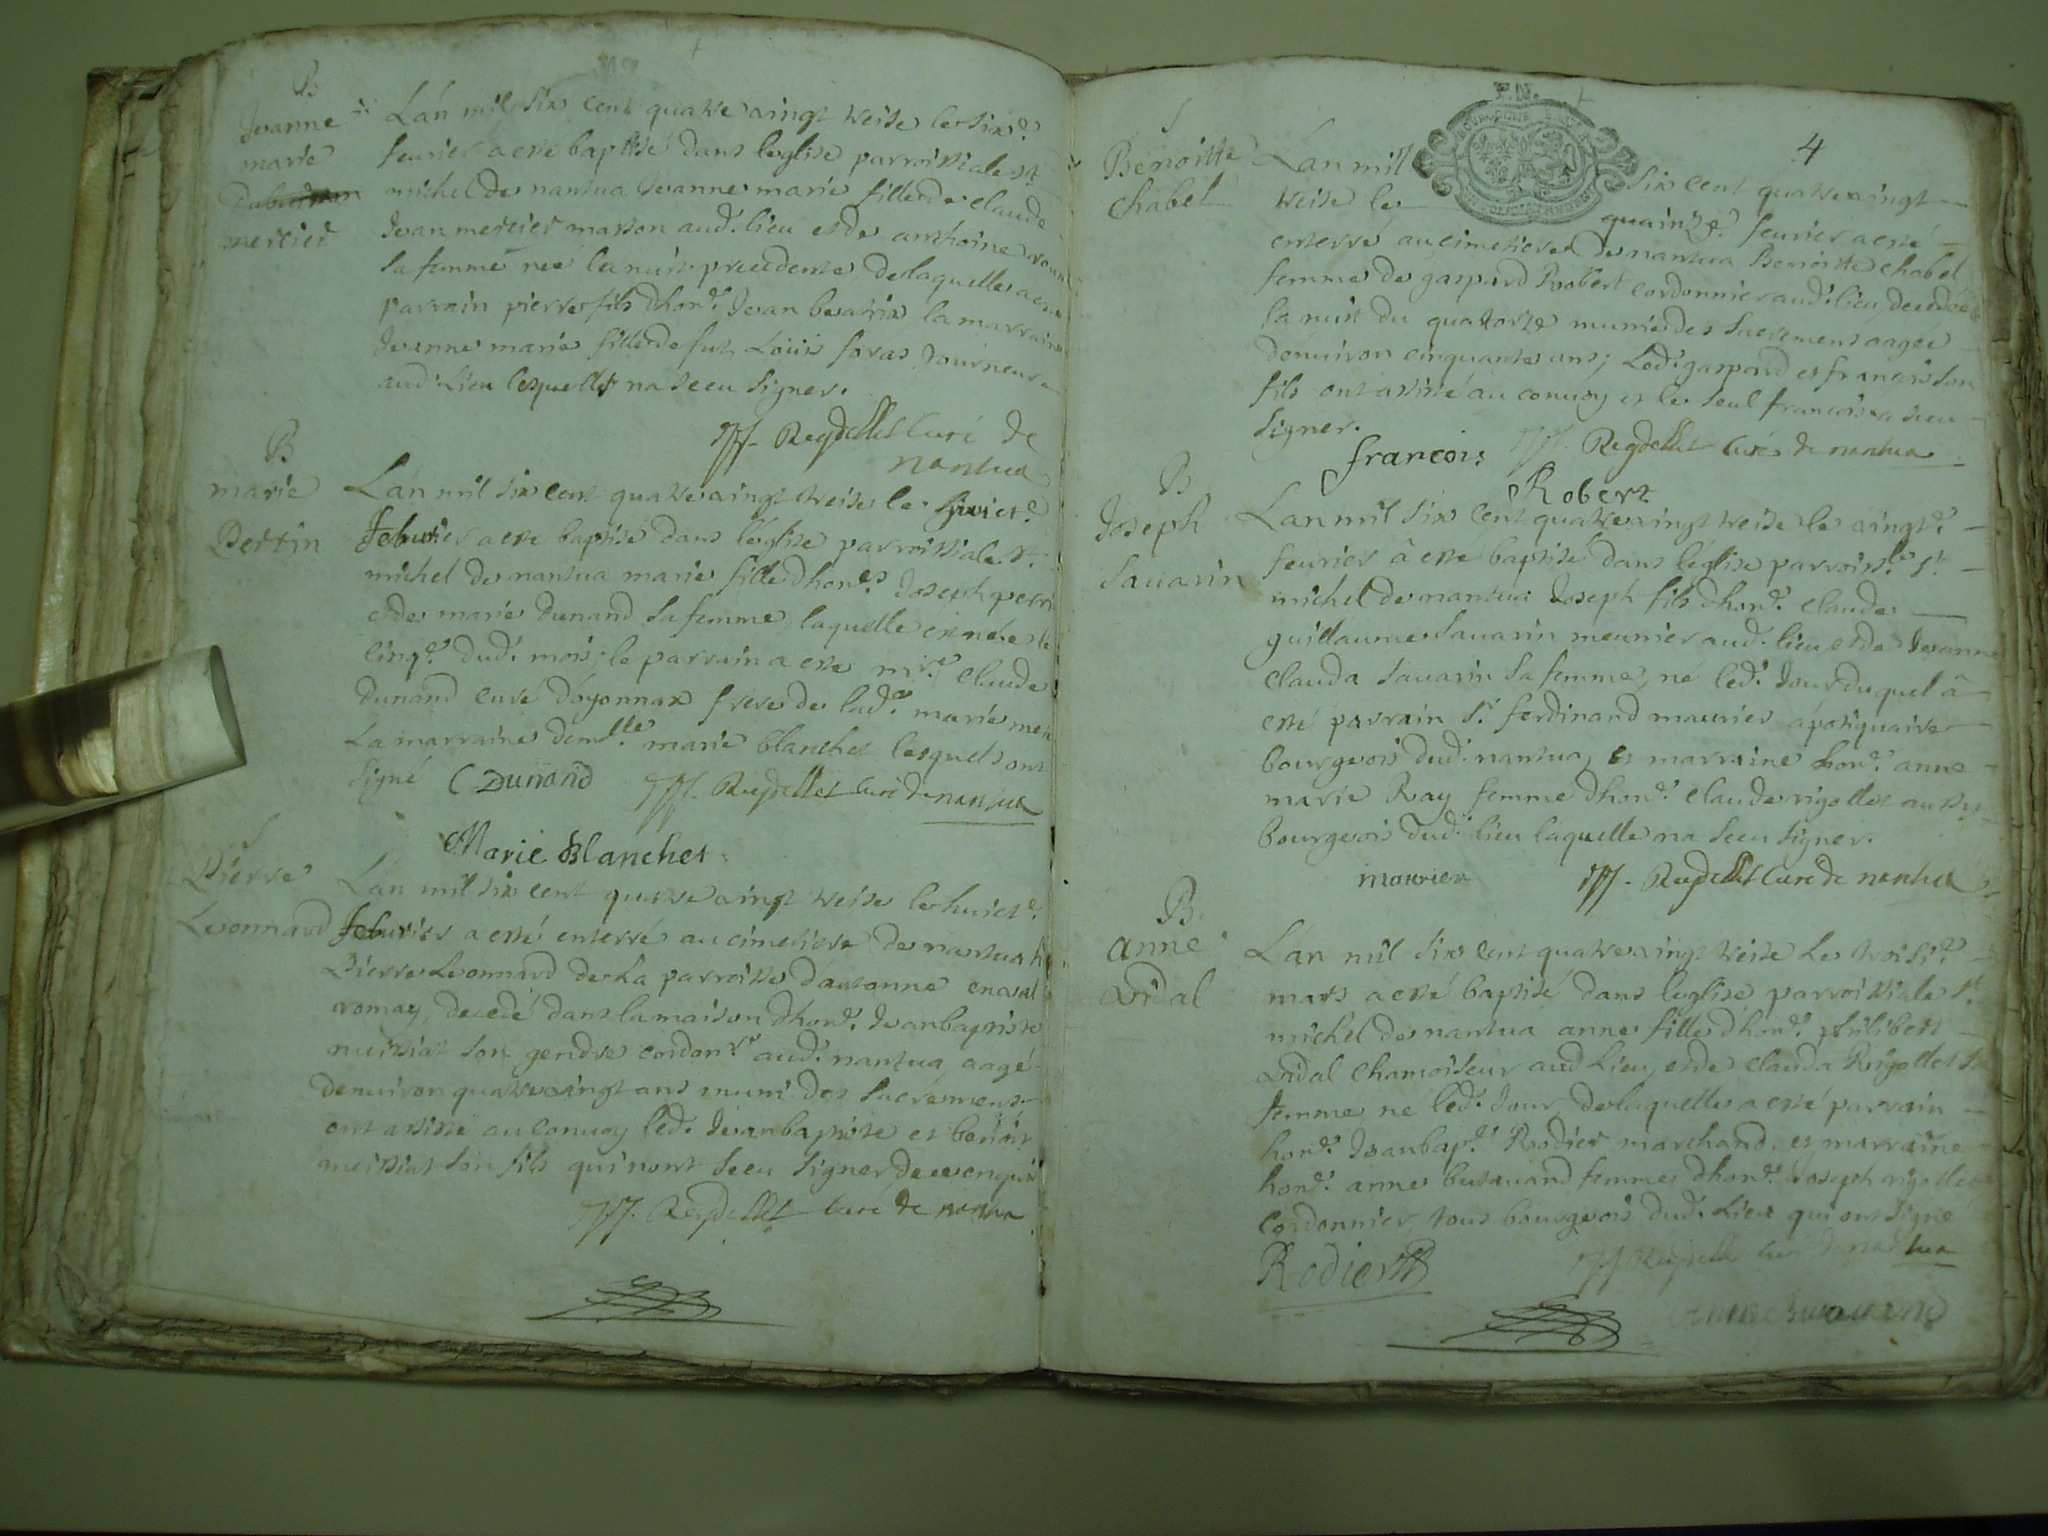 B
Jeanne
marie
mercier
Lan mil six cent quatre vingt treise le six.e
feurier a esté baptisé dans leglise parroissiale st
michel de nantua Jeanne marie fille de claude
Jean mercier masson aud. lieu et de anthoine
sa femme née la nuit precedente de laquelle a esté
parrain pierre fils dhon.e Jean beatrix la marraine
Jeanne marie fille de fut Louis foras Tourneur
aud. Lieu lesquells na sceu signer.
Reydellet Curé de
nantua
B
marie
Perrin
Lan mil six cent quatre vingt treise le huict.e
feburier a esté baptisé dans leglise parroissiale st.
michel de nantua marie fille dhon.es Joseph perrin
et de marie Dunand sa femme, laquelle est née le
cinq.e dud. mois, le parrain a esté m.re claude
Dunand curé doyonnax frere de lad.e marie
La marraine dem.lle marie blanchet lesquels ont
signé C Dunand Reydellet Curé de nantua
Marie Blanchet
S
Pierre
Leonnard
Lan mil six cent quatre vingt treise le huict.e
feburier a esté enterré au cimetiere de nantua h
Pierre Leonnard de la parroisse dautonne en val
romay, decedé dans la maison dhon.e Jean baptiste
meissiat son gendre cordon.r aud. nantua, aagé
denuiron quatre vingt ans muni des sacremens
ont assisté au conuoy led. Jean baptiste et benoit
meissiat son fils qui nont sceu signer de ce enquis
Reydellet Curé de nantua
4
S
Benoitte
Chabel
Lan mill six cent quatre vingt
treise le quainz.e feurier a esté
enterré au cimetiere de nantua Benoitte Chabel
femme de gaspard Robert cordonnier aud. lieu, decedée
la nuit du quatorze munie des sacremens aagée
denuiron cinquante ans; Led. gaspard et francois son
fils ont assisté au conuoy et le seul francois a sceu
signer.
Reydellet Curé de nantua
francois
Robert
B
Joseph
Sauarin
Lan mil six cent quatre vingt treise le vingt.e
feurier â esté baptisé dans léglise parroiss.le st.
michel de nantua Joseph fils dhon.e claude
guillaume Sauarin meunier aud. lieu et de Jeanne
clauda Sauarin sa femme, né led. Jour duquel â
esté parrain s.r ferdinand maurier ápotiquaire
bourgeois dud. nantua, et marraine hon.e anne
marie Ray femme dhon.e claude rigollet aussy
bourgeois dud. lieu laquelle na sceu signer.
maurier Reydellet Curé de nantua
B
anne
Vidal
Lan mil six cent quatre vingt treise le troisi.e
mars a esté baptisé dans leglise parroissiale st.
michel de nantua anne fille dhon.e philibert
Vidal chamoiseur aud Lieu, et de clauda Rigollet sa
femme né led. Jour, de laquelle a esté parrain
hon.e Jean bap.e Rodier marchand, et marraine
hon.e anne butauand femme dhon.e Joseph rigollet
cordonnier, tous bourgeois dud. Lieu qui ont signé
Rodier